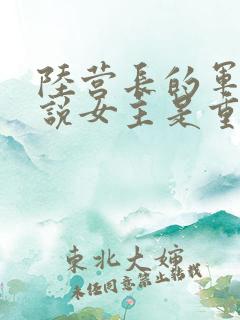 陸营長的軍
說女主是重
東北大嬸
未经同意禁止转载